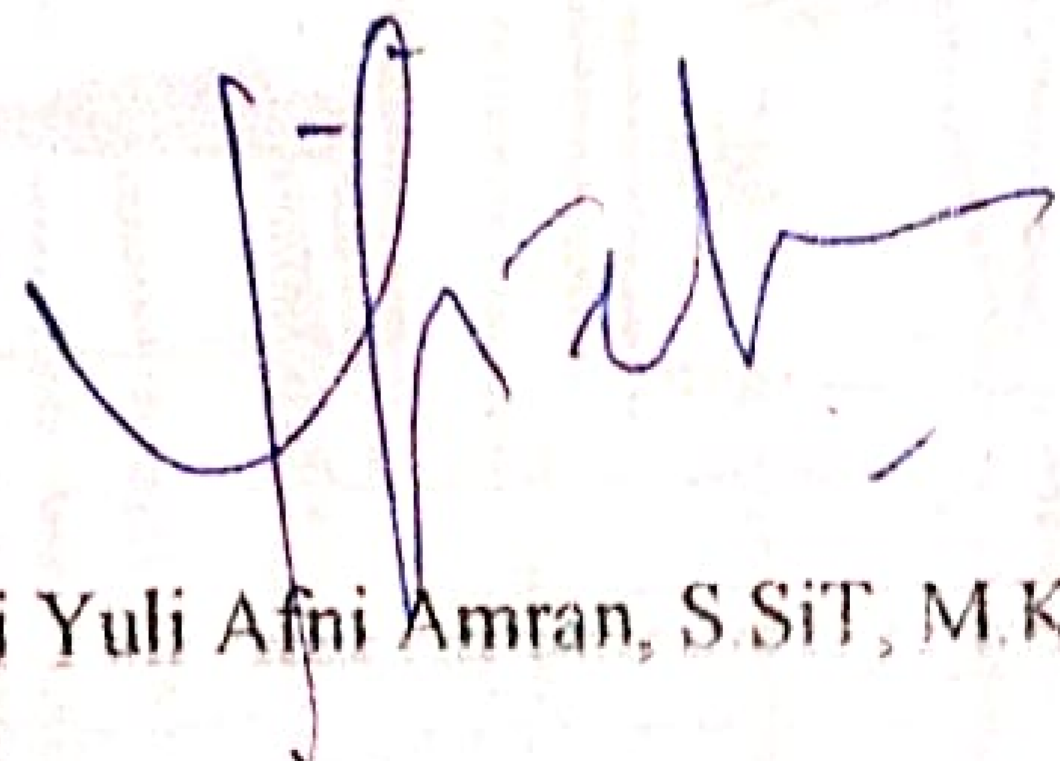 i Yuli Afni Amran, S.SiT, M.K